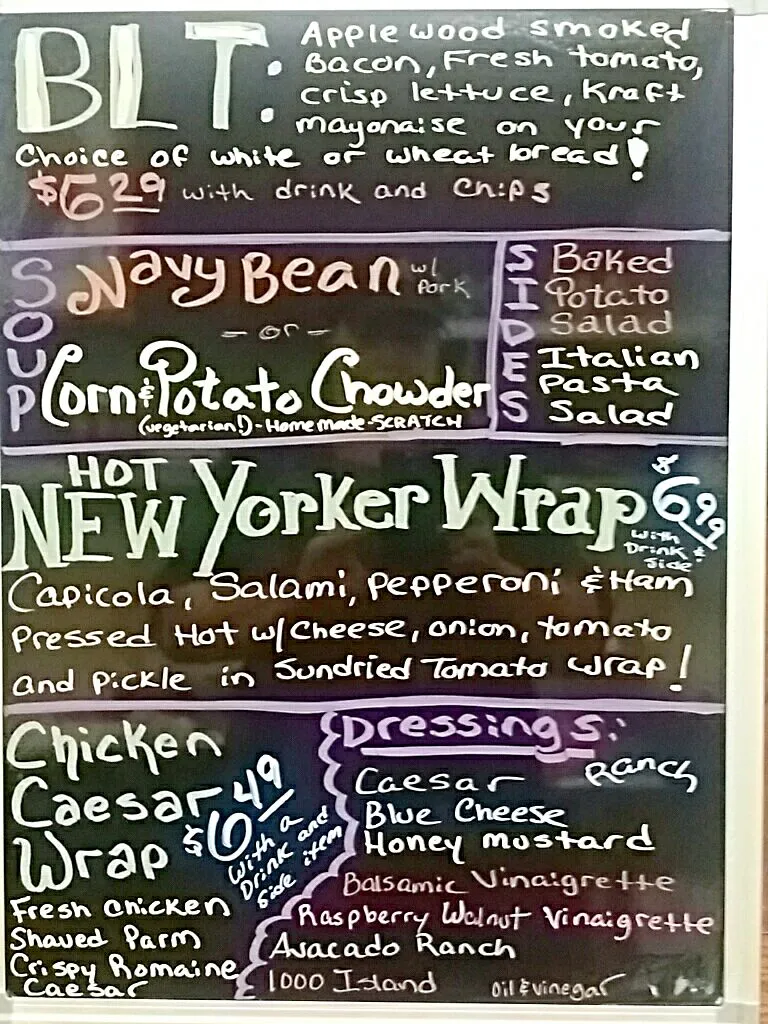 BLT: Applewood smoked
Bacon, Fresh tomato,
crisp lettuce, Kraft
mayonaise on your
Choice of white or wheat bread!
$6.29 with drink and chips
SOUP
Navy Bean w/ Pork
- or -
Corn & Potato Chowder
(vegetarian!) - Homemade - SCRATCH
SIDES
Baked
Potato
Salad
Italian
Pasta
Salad
HOT
NEW Yorker Wrap $6.99
with
Drink &
Side
Capicola, Salami, Pepperoni & Ham
Pressed Hot w/ Cheese, onion, tomato
and pickle in Sundried Tomato wrap!
Chicken
Caesar
Wrap
$6.49
with a
Drink and
Side item
Fresh chicken
Shaved Parm
Crispy Romaine
Caesar
Dressings:
Caesar
Ranch
Blue Cheese
Honey mustard
Balsamic Vinaigrette
Raspberry Walnut Vinaigrette
Avacado Ranch
1000 Island
Oil & vinegar